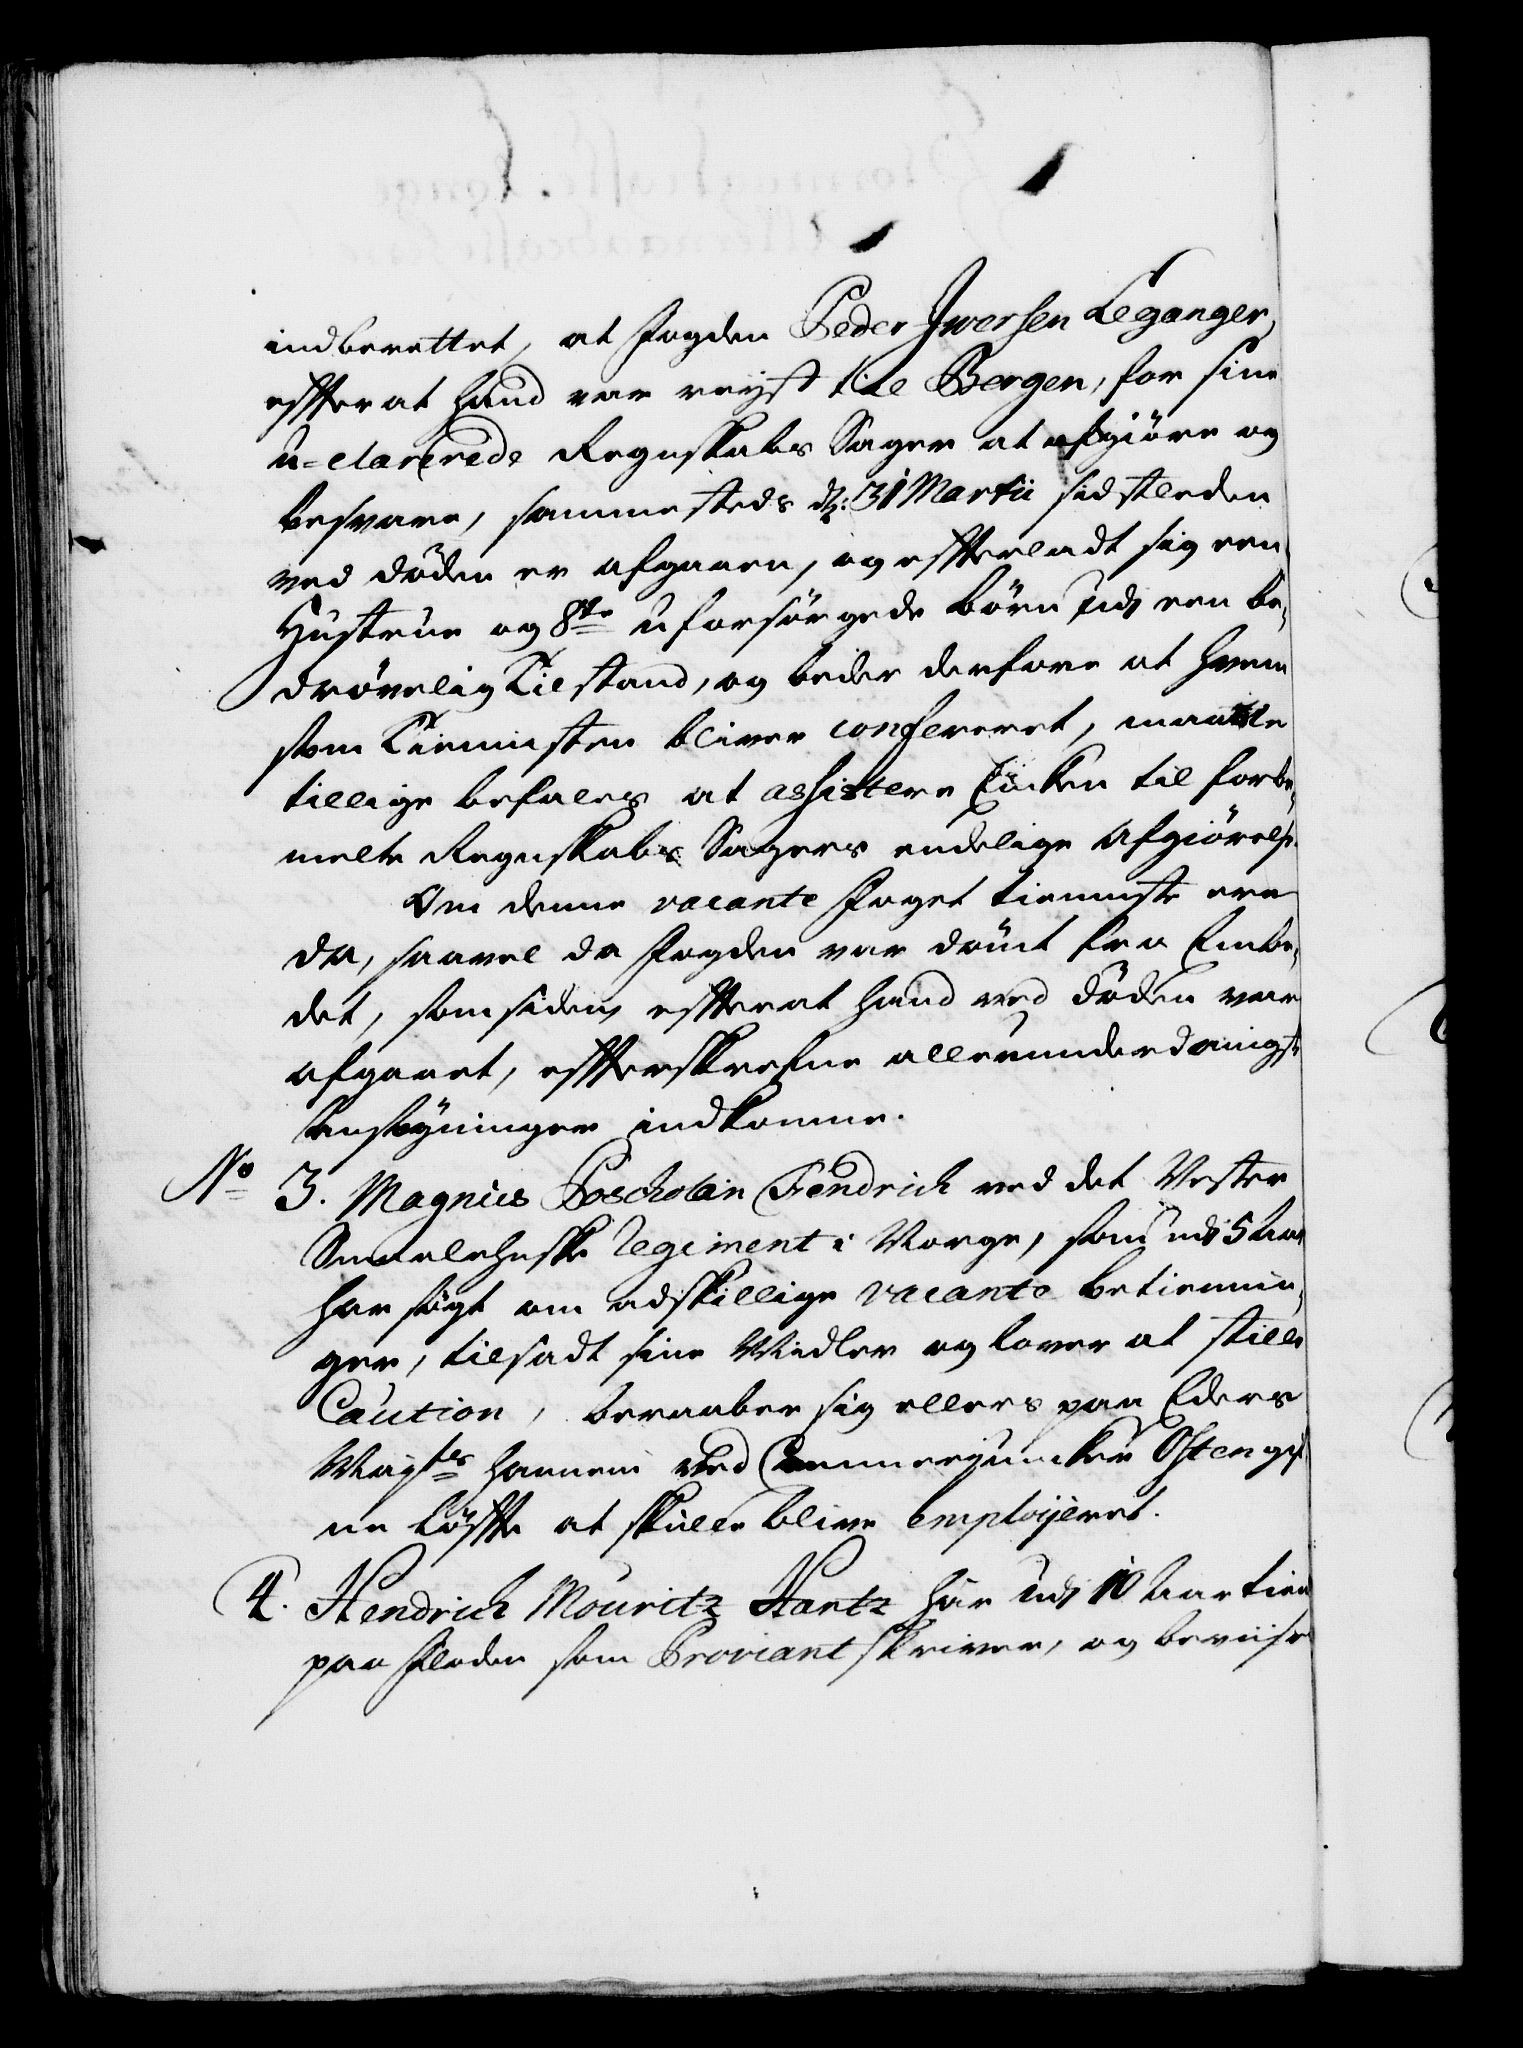 indberettet, at Fogden Peder Iwersen Leganger,
effterat hand var reyst till Bergen, for sine
u-clarerede Regnskabs Sager at afgiøre og
besvare, sammesteds dz: 31 Martii sidstleden
ved døden er afgaaen, og effterladt sig een
Hustrue og 8te uforsørgede børn udj een be-
drøvelig Tilstand, og beder derfore at hvem
som Tiennisten bliver confereret, maatte
tillige befales at assistere Encken til forbe-
melte Regnskabs Sagers endelige Afgiørelse.
Om denne vacante Foget tienniste ere
da, saavel da Fogden var dömt fra Embe-
det, som siden, effterat hand ved døden var
afgaaet, effterskrefne allerunderdanigste
Ansøgninger indkomne.
No 3. Magnus Poscholan Fendrich ved det Vester
Smaalehnske Regiment i Norge, som udj 5 Aar
har søgt om adskillige vacante betiennin-
ger, tilsadt sine Midler og lover at stille
Caution, beraaber sig ellers paa Eders
Mayts hannem ved Cammerjuncker Osten gif-
ne løffte at skulle blive employeret.
4. Hendrich Mouritz Hartz har udj 10 Aar tient
paa Floden som Proviantskriver, og beviise